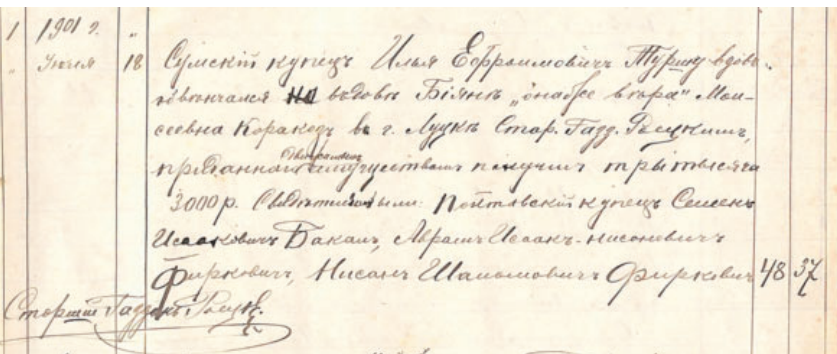 1 1901 г. "
" Июля 18 Сумскій купецъ Илья Ефраимовичъ Туршу вдов.
обвѣнчался на вдовѣ Біянѣ „онаѳре вѣра" Мои-
сеевна Каракозъ въ г. Луцкѣ Стар. Газз. Фирковичемъ,
приданнаго движимымъ имуществомъ получилъ три тысяча
3000 р. Свидѣтелями были: Полтавскій купецъ Семенъ
Исааковичъ Бакалъ, Абрамъ Исаакъ-Нисановичъ
Фирковичъ, Нисанъ Шаломовичъ Фирковичъ 48 37
Старшій Газзанъ